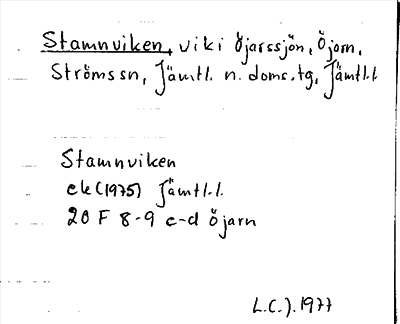 Stamnviken, vik i Öjarssjön, Öjarn,
Strömssn, Jämtl. n. doms.tg, Jämtl.l.
Stamnviken
ek (1975) Jämtl.l.
20 F 8-9 c-d Öjarn
L.C.J. 1977